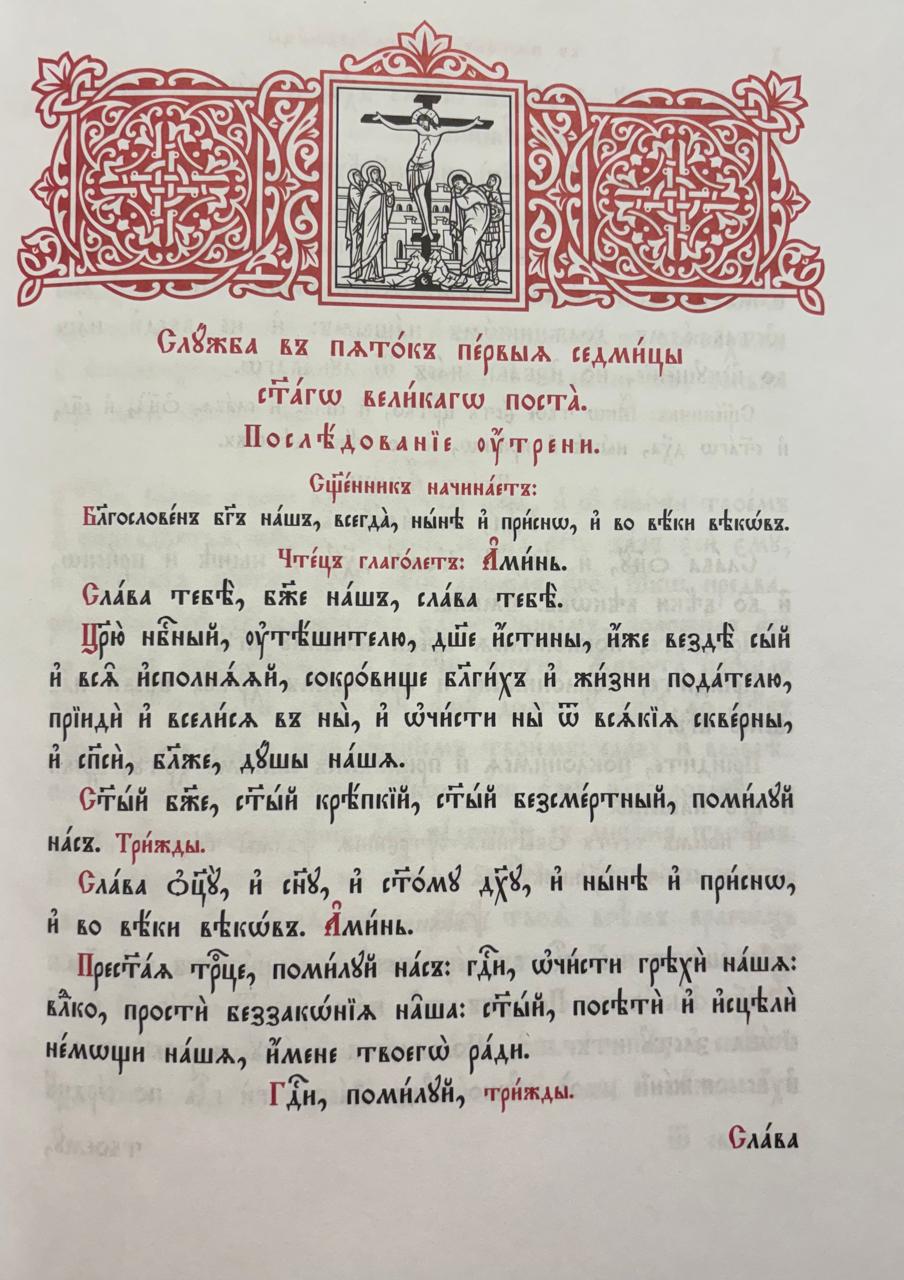 Слꙋ́жба въ пѧто́къ пе́рвыѧ седми́цы
ст҃а́гѡ вели́кагѡ поста̀.
Послѣ́дованїе ᲂу҆́трени.
Сщ҃е́нникъ начина́етъ:
Бл҃гослове́нъ бг҃ъ на́шъ, всегда̀, ны́нѣ и҆ при́снѡ, и҆ во вѣ́ки вѣкѡ́въ.
Чте́цъ глаго́летъ: А҆ми́нь.
Сла́ва тебѣ̀, бж҃е на́шъ, сла́ва тебѣ̀.
Цр҃ю̀ нбⷭ҇ный, ᲂу҆тѣ́шителю, дш҃е и҆́стины, и҆́же вездѣ̀ сы́й
и҆ всѧ̑ и҆сполнѧ́ѧй, сокро́вище бл҃ги́хъ и҆ жи́зни пода́телю,
прїидѝ и҆ всели́сѧ въ ны̀, и҆ ѡ҆чи́сти ны̀ ѿ всѧ́кїѧ скве́рны,
и҆ сп҃сѝ, бл҃же, дꙋ́шы на́шѧ.
Ст҃ы́й бж҃е, ст҃ы́й крѣ́пкїй, ст҃ы́й безсме́ртный, поми́лꙋй
на́съ. Три́жды.
Сла́ва ѻ҆ц҃ꙋ̀, и҆ сн҃ꙋ, и҆ ст҃о́мꙋ дх҃ꙋ, и҆ ны́нѣ и҆ при́снѡ,
и҆ во вѣ́ки вѣкѡ́въ. А҆ми́нь.
Прест҃а́ѧ трⷪ҇це, поми́лꙋй на́съ: гдⷭ҇и, ѡ҆чи́сти грѣхѝ на́шѧ:
влⷣко, простѝ беззакѡ́нїѧ на̑ша: ст҃ы́й, посѣтѝ и҆ и҆сцѣлѝ
не́мѡщи на́шѧ, и҆́мене твоегѡ̀ ра́ди.
Гдⷭ҇и, поми́лꙋй, три́жды.
Сла́ва